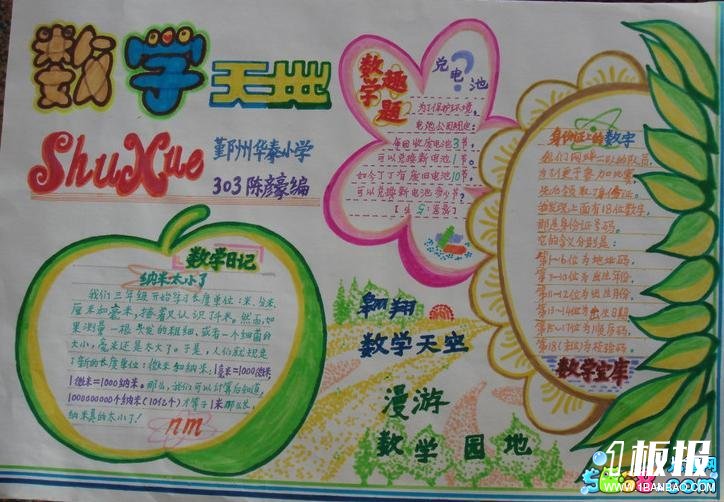 数学天地
ShuXue
鄞州华泰小学
303 陈彦豪编
数学趣题
兑电池
?
为了保护环境,
电池公司规定:
每回收废电池3节
可以兑换新电池1节。
如今丁丁有废旧电池10节
可以兑换新电池多少节?
身份证上的数字
它的含义分别是:
第1~6位为地址码,
第7~10位为出生年份,
第11~12位为出生月份,
第13~14位为出生日期,
第15~17位为顺序码,
第18位为校验码。
数学宝库
数学日记
纳米太小了
我们三年级开始学习长度单位:米、分米、
厘米和毫米,接着又认识了千米。然而,如
果测量一根头发的粗细,或者一个细菌的
大小,毫米还是太大了。于是,人们就规定
了新的长度单位:微米和纳米,1毫米=1000微米,
1微米=1000纳米。那么,我们可以计算后知道,
1000000000个纳米(10亿个)才等于1米
纳米真的太小了!
nm
翱翔
数学天空
漫游
数学园地
1板报
WWW.1BANBAO.COM